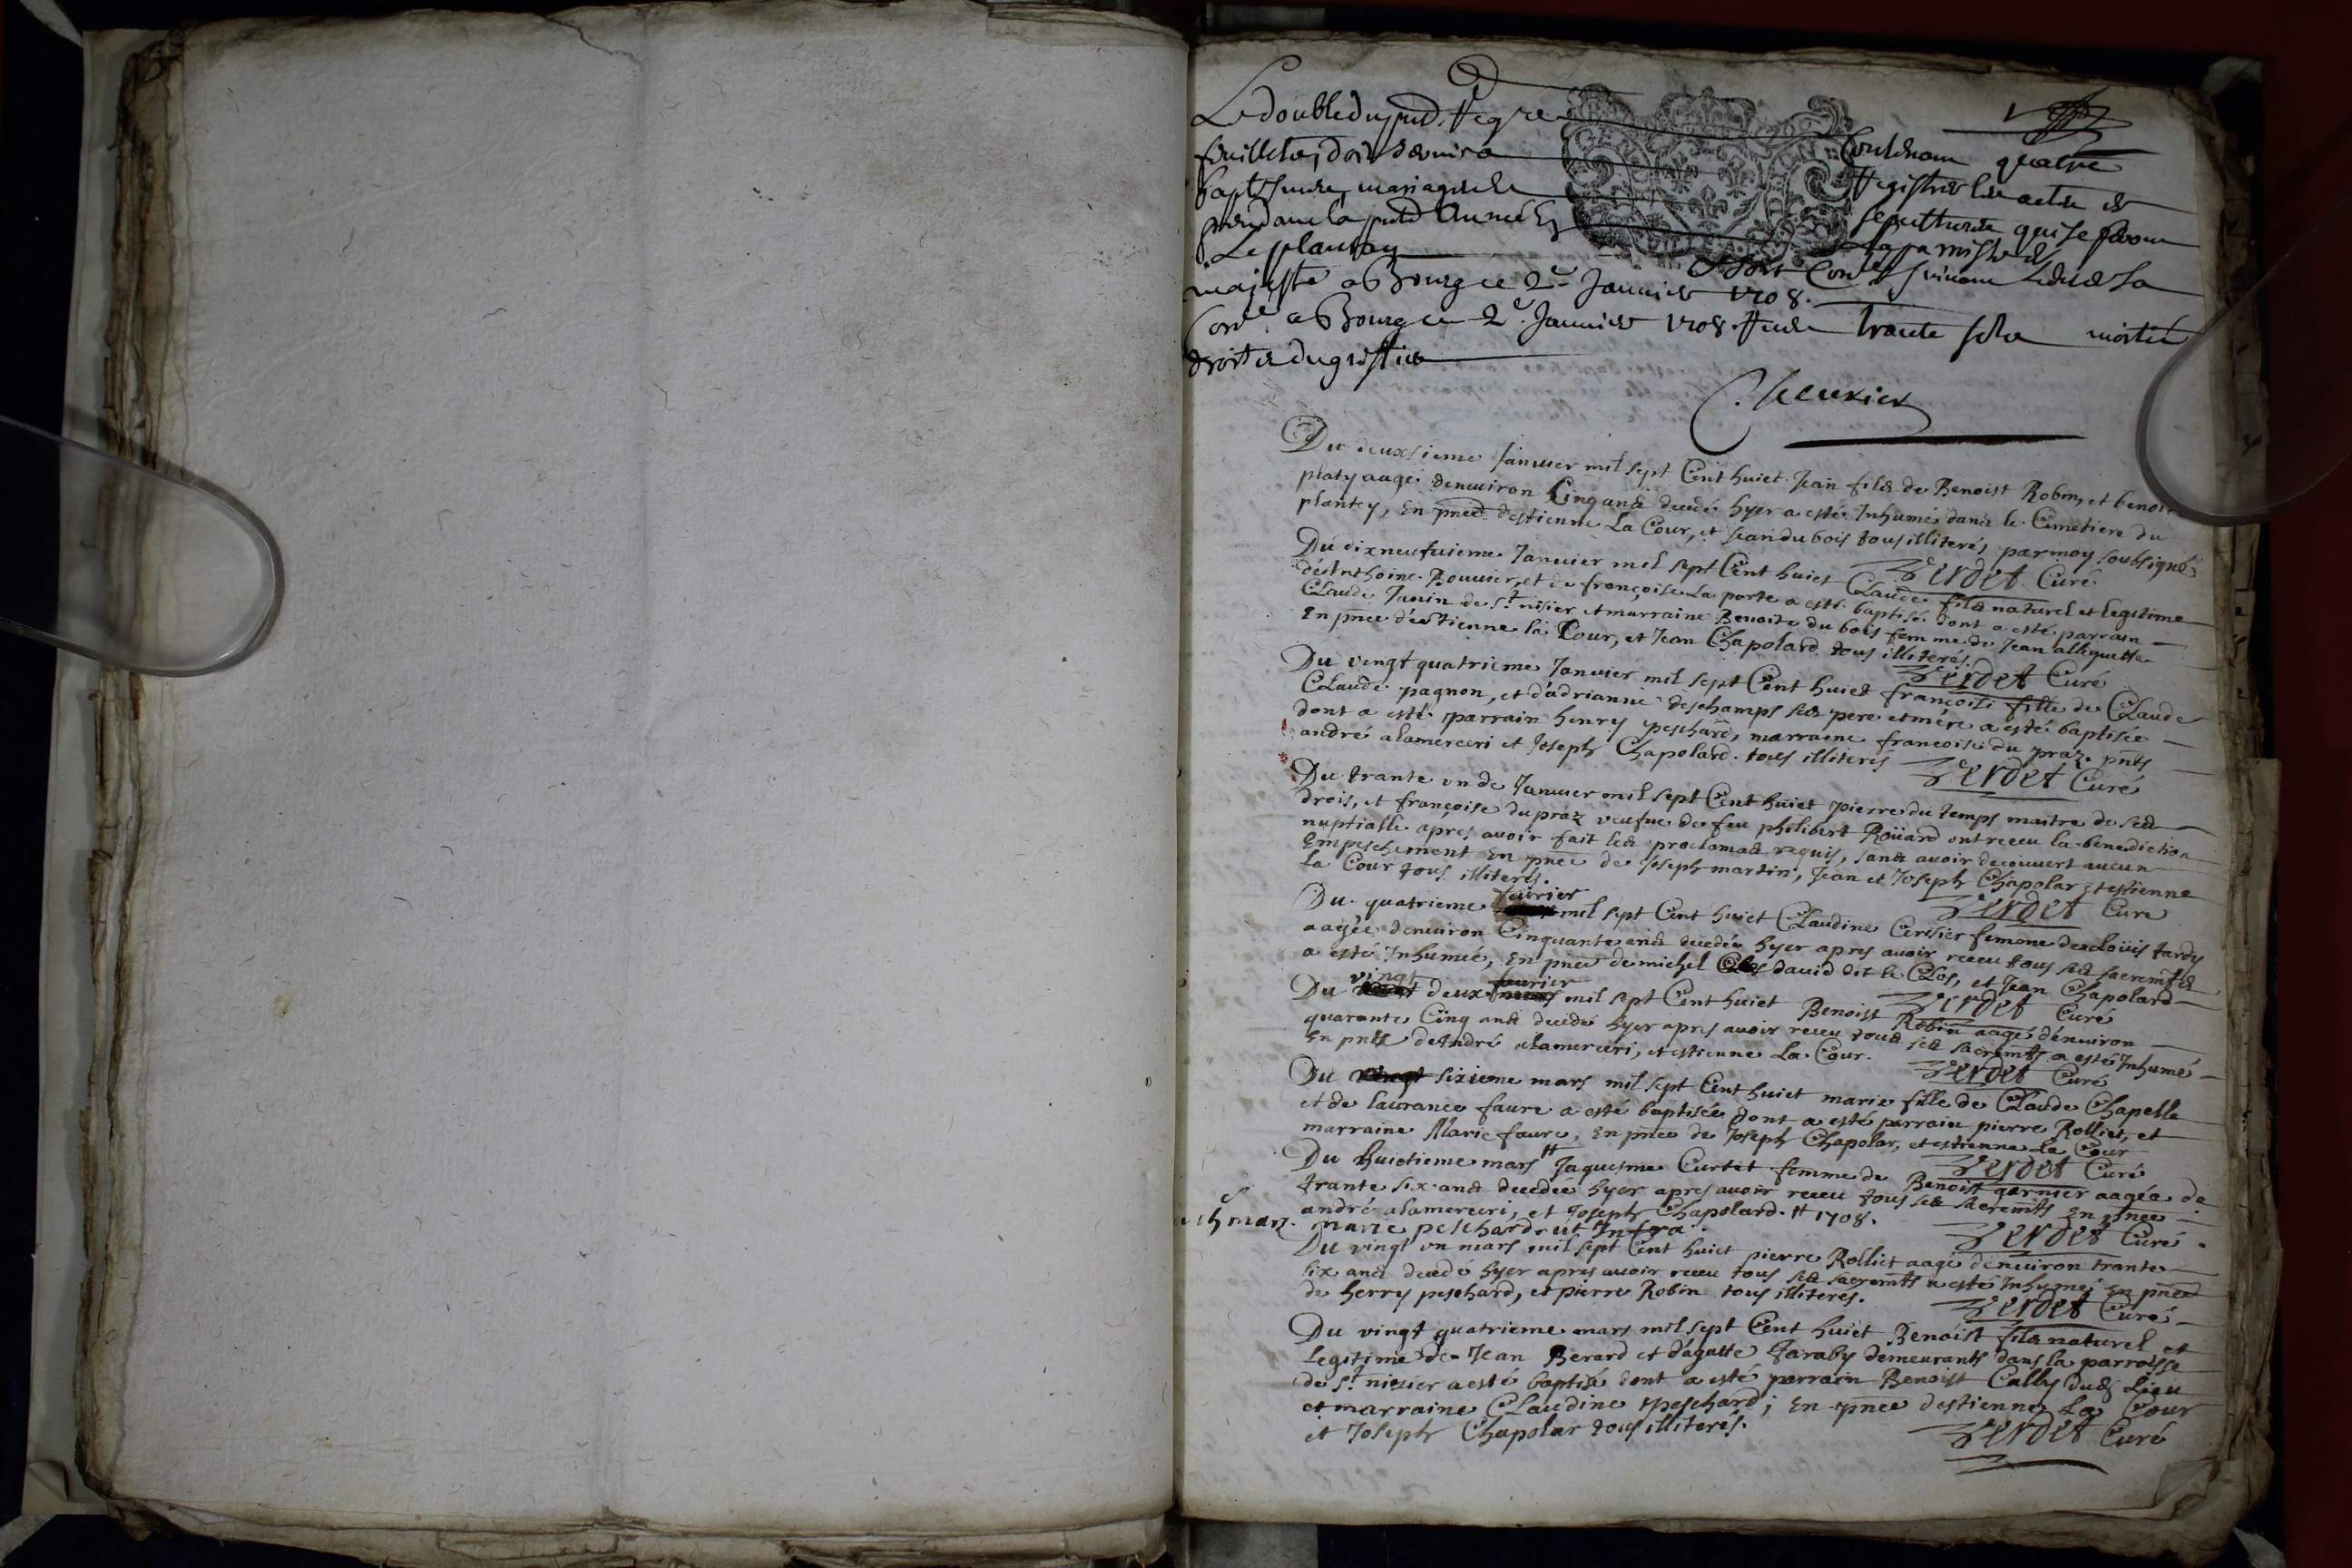 Le double du pnt Regre Contenant quatre
feuillets, doit servir a Registrer les actes de
baptesmes, mariages et sepultures qui se feront
pendant la pnte Année En la parroisse de
Le plantay suivant Ledit de Sa
majesté a Bourg ce 2e Janvier 1708.
Conlle a Bourg ce 2e Janvier 1708 Receu trante sols moitié
droit du greffier
Du deuxsieme Januier mil sept Cent huict Jean fils de Benoist Robin, et benoit
platy aagé denuiron Cinq ans decedé hyer a esté Inhumé dans le Cimetiere du
plantey, En pnce destienne La Cour, et Jean du bois tous illiterés par moy soubsigné
Verdet Curé
Du dixneufuieme Januier mil sept Cent huict Claude fils naturel et legitime
dAnthoine Bouuier, et de françoise La porte a esté baptisé dont a esté parrain
Claude Janin de St nisier et marraine Benoite du bois femme de Jean alleguette
En pnce destienne la Cour, et Jean Chapolard tous illiterés.
Verdet Curé
Du vingt quatrieme Januier mil sept Cent huict françoise fille de Claude
Claude pagnon, et d'adrianne deschamps ses pere et mére a esté baptisée
dont a esté parrain henry peschard, marraine francoise du praz. pnts
andré alamerceri et Joseph Chapolard tous illiterés
Verdet Curé
Du trante vn de Januier mil sept Cent huict pierre du temps maitre de ses
drois, et françoise dupraz veufue de feu philibert Roüard ont receu la benediction
nuptialle apres auoir fait les proclamas requis, sans auoir decouuert aucun
Empeschement En pnce de Joseph martin, Jean et Joseph Chapolar et estienne
La Cour tous illiterés.
Verdet Curé
Du quatrieme feurier mil sept Cent huict Claudine Cerisier femme de Louis tardy
aagée denuiron Cinquante ans decedée hyer apres auoir receu tous ses sacremts
a esté Inhumée, En pnce de michel dauid dit le Clos, et Jean Chapolard
Verdet Curé
Du vingt deux feurier mil sept Cent huict Benoist Robin aagé dénuiron
quarante Cinq ans decedé hyer apres auoir receu tous ses sacremts a esté Inhumé
En pnce deAndré alamerceri, et estienne La Cour.
Verdet Curé
Du sixieme mars mil sept Cent huict marie fille de Claude Chapelle
et de laurance faure a esté baptisée dont a esté parrain pierre Rolliet, et
marraine Marie faure, En pnce de Joseph Chapolar, et estienne La Cour
Verdet Curé
Du huictieme mars # Jaquesme Curtet femme de Benoist garnier aagée de
trante six ans decedée hyer apres auoir receu tous ses sacremts En pnce
andré alamerceri, et Joseph Chapolard. # 1708.
marie peschard ut Infra.
Verdet Curé
Du vingt vn mars mil sept Cent huict pierre Rolliet aagé denuiron trante
six ans decedé hyer apres auoir receu tous ses sacremts a esté Inhumé En pnce
de herry peschard, et pierre Robin tous illiterés.
Verdet Curé
Du vingt quatrieme mars mil sept Cent huict Benoist fils naturel et
Legitime de Jean Berard et dágatte Jaraby demeurants dans la parroisse
de St nizier a esté baptisé dont a esté parrain Benoist Cally dud Lieu
et marraine Claudine peschard; En pnce destienne La Cour
et Joseph Chapolar tous illiterés.
Verdet Curé